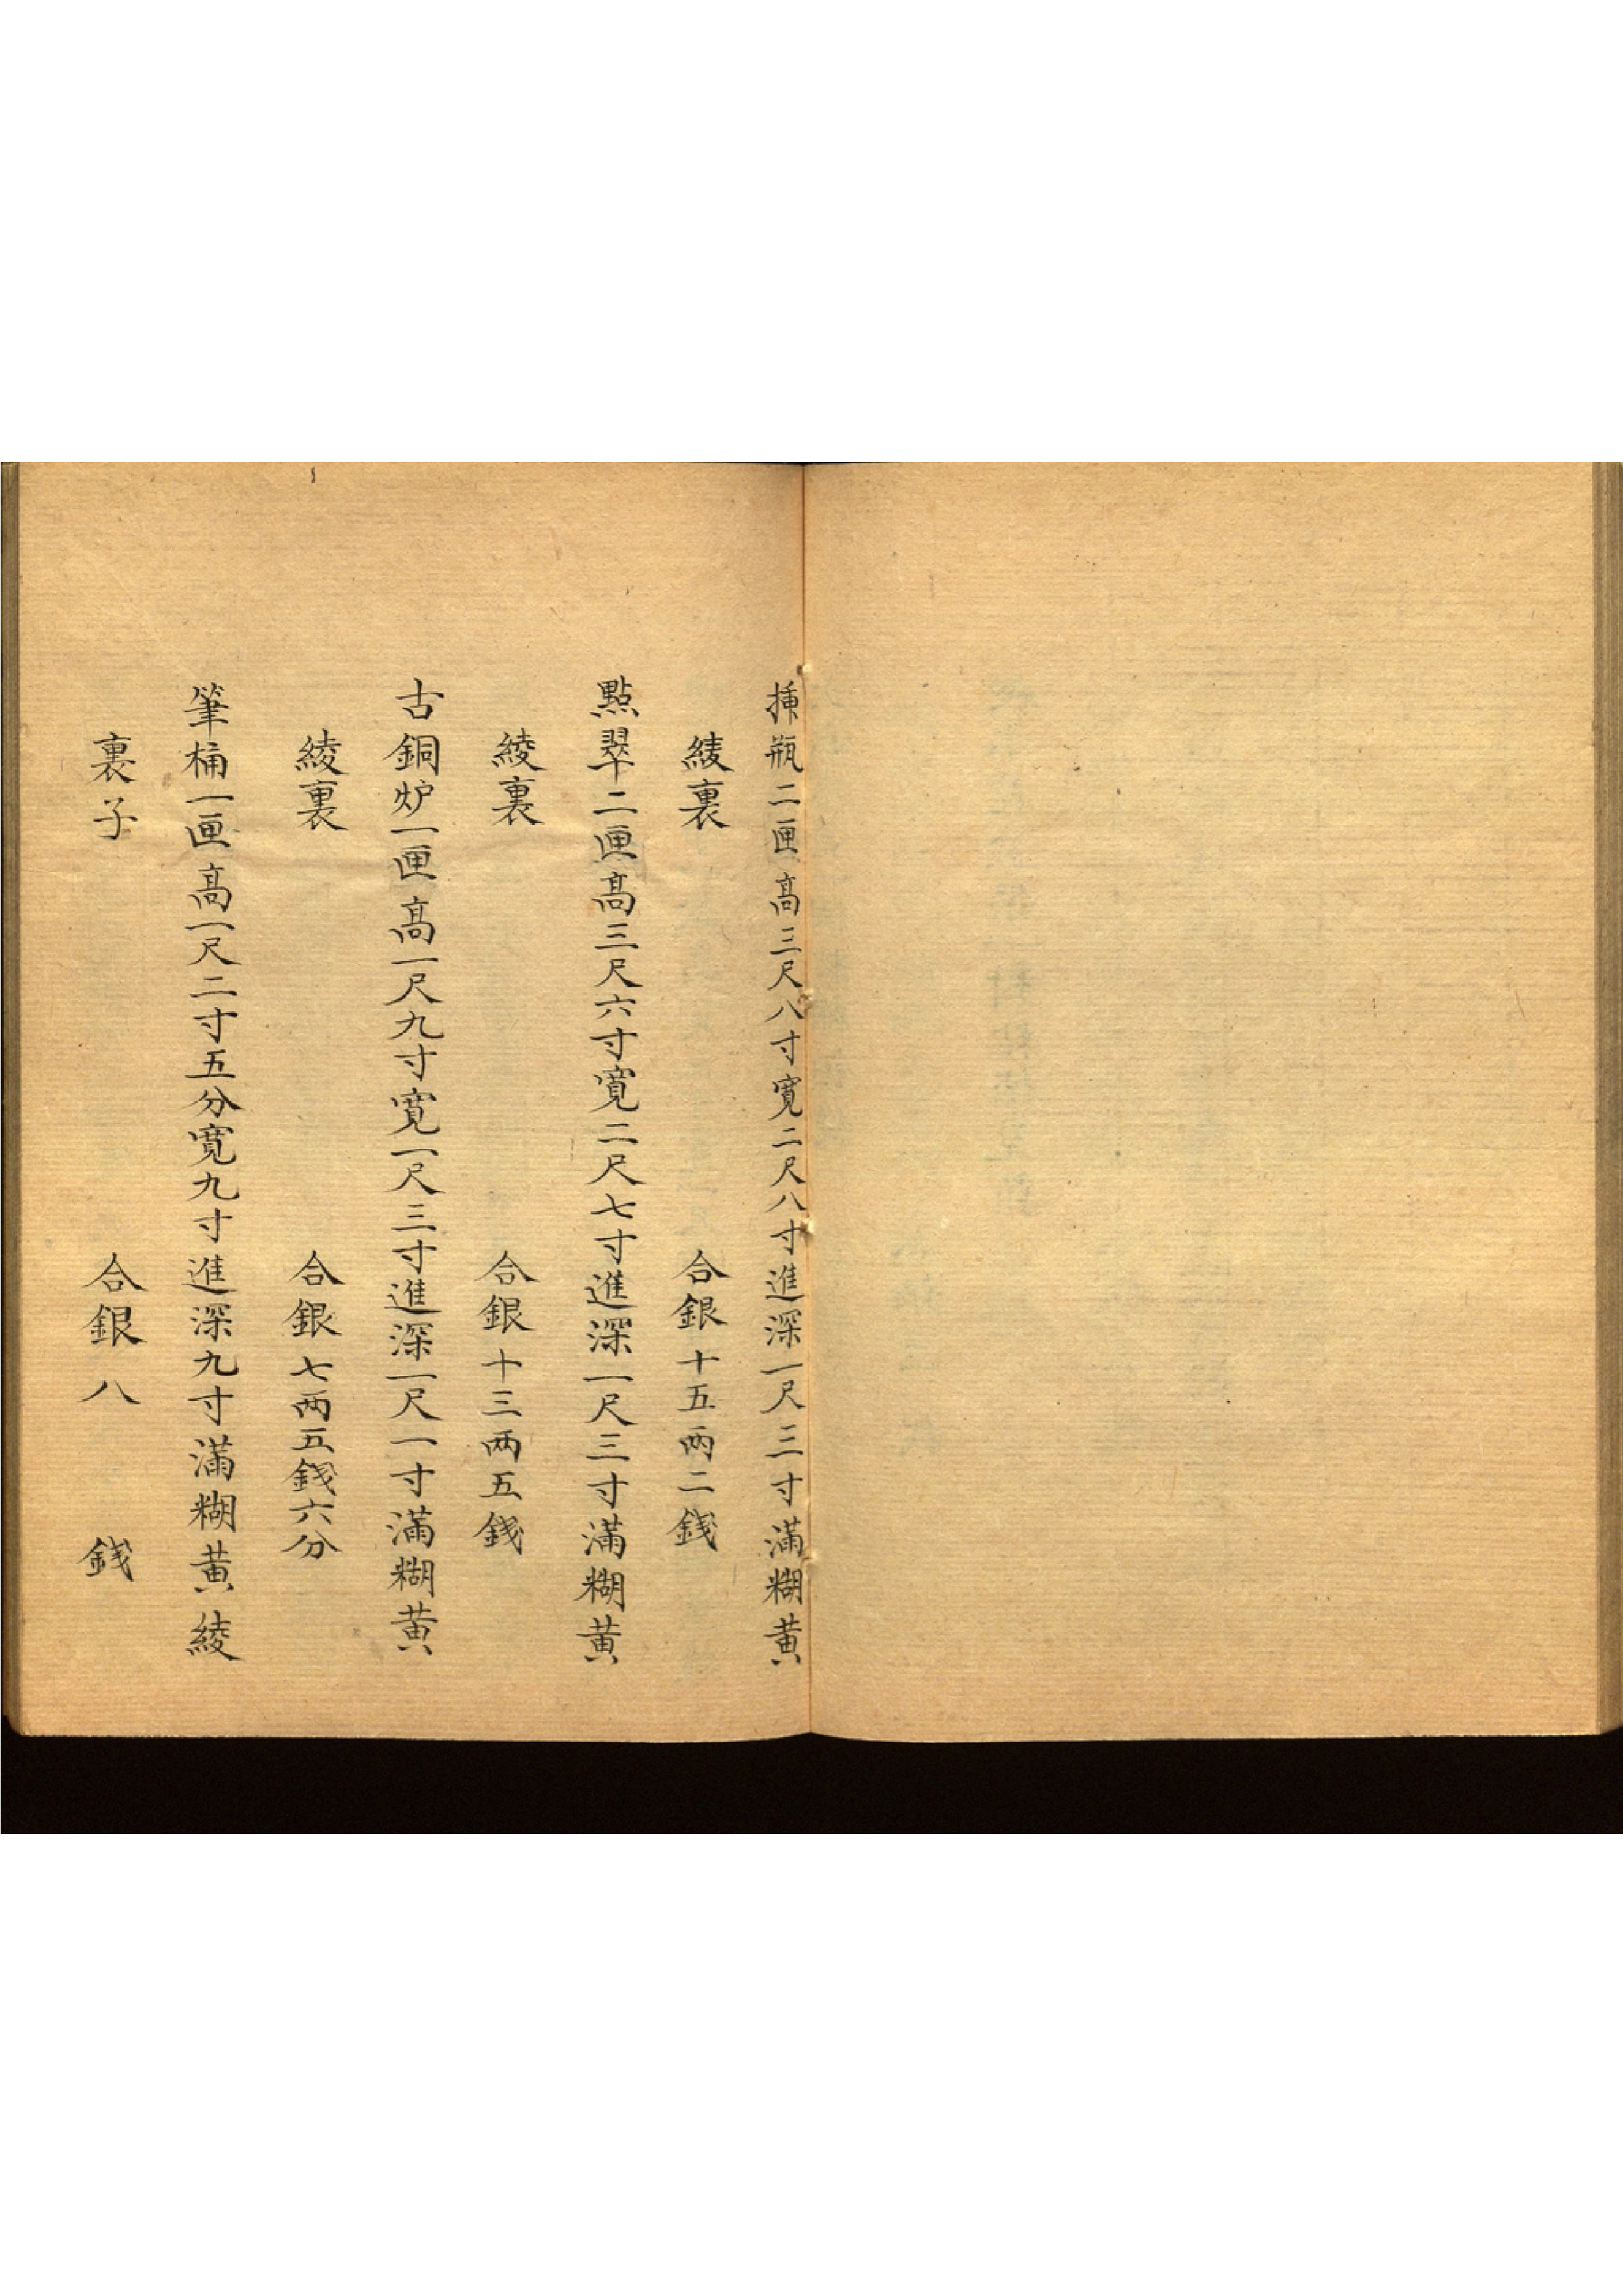 揷瓶二匣高三尺八寸寬二尺八寸進深一尺三寸滿糊黄
綾裏　合銀十五兩二錢
點翠二匣高三尺六寸寬二尺七寸進深一尺三寸滿糊黄
綾裏　合銀十三兩五錢
古銅炉一匣高一尺九寸寬一尺三寸進深一尺一寸滿糊黄
綾裏　合銀七兩五錢六分
筆桶一匣高一尺二寸五分寬九寸進深九寸滿糊黄綾
裏子　合銀八　錢